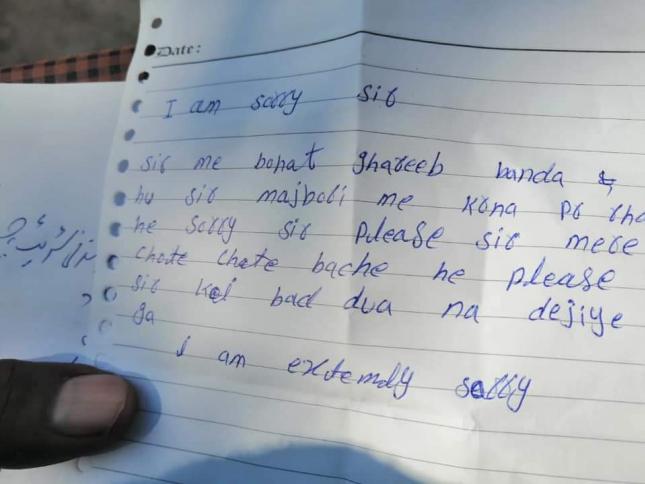 Date:
I am sorry sir
sir me bohat ghareeb banda
hu sir majboli me krna pr rha
he sorry sir please sir mere
chote chote bache he please
sir koi bad dua na dejiye
ga
i am extemdly sorry